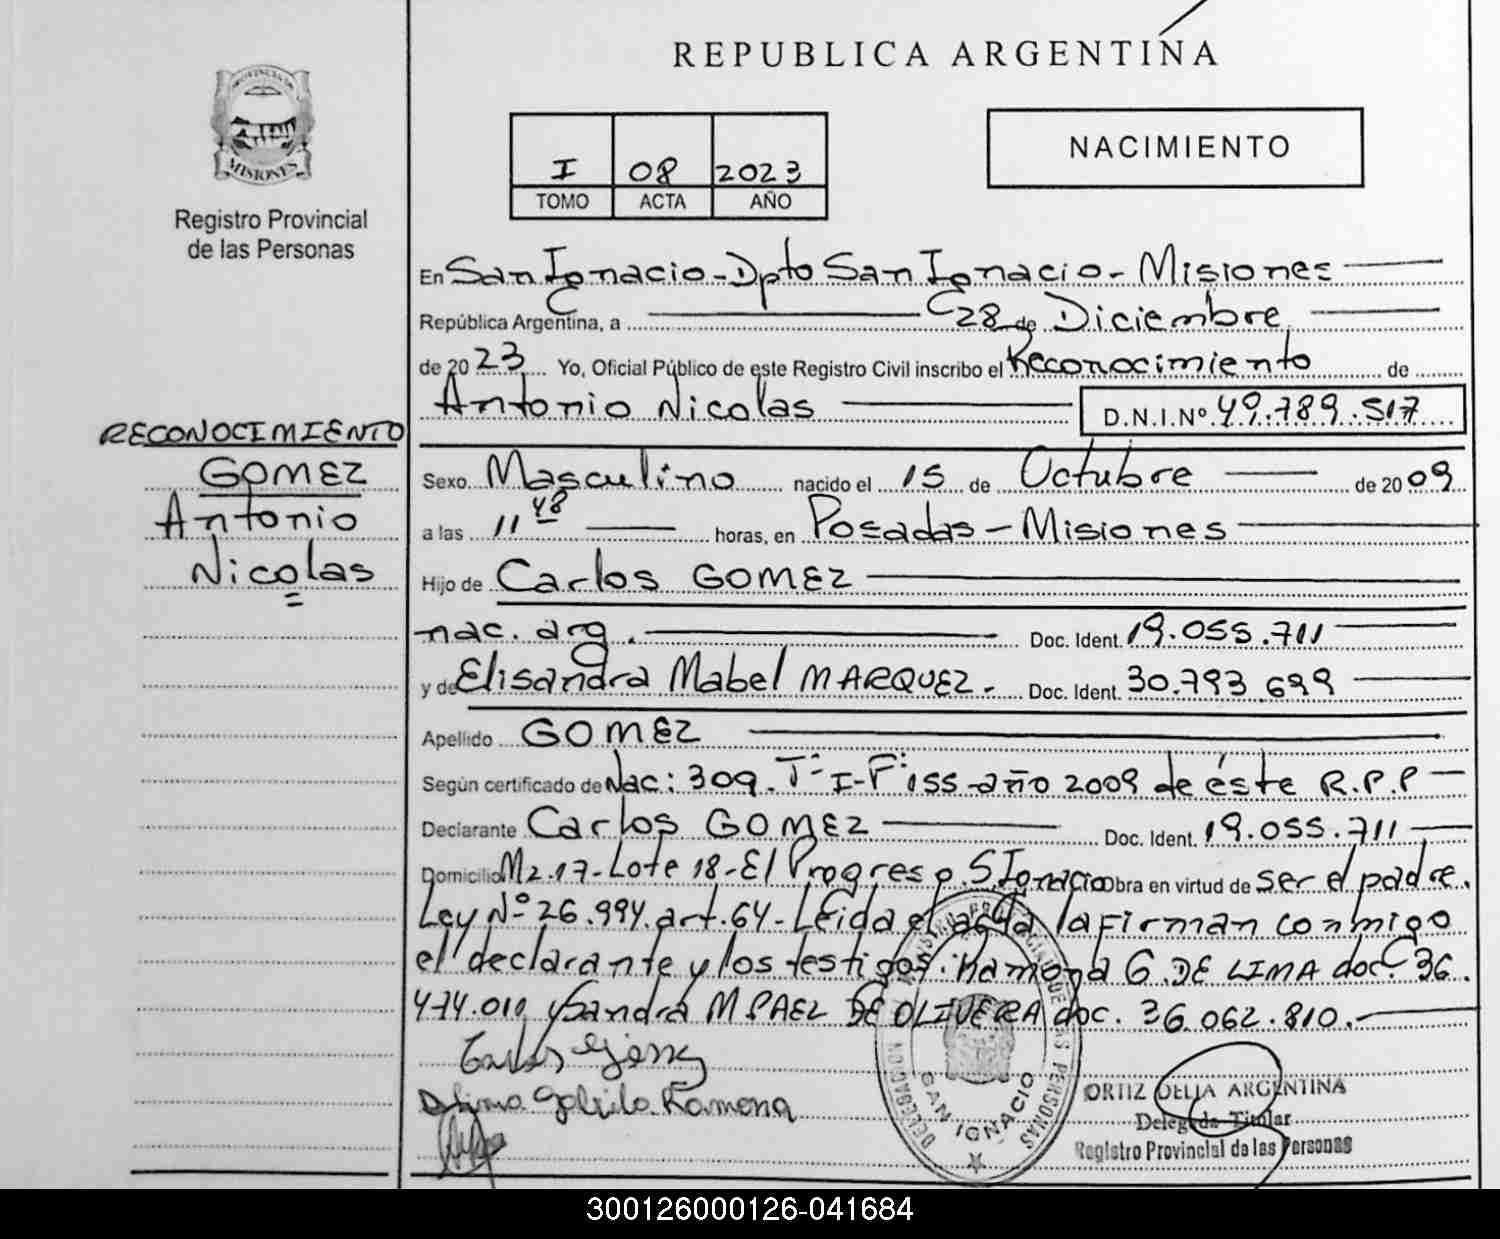 REPUBLICA ARGENTINA
PROVINCIA DE
MISIONES
Registro Provincial
de las Personas
I 08 2023
TOMO ACTA AÑO
NACIMIENTO
En San Ignacio - Dpto San Ignacio - Misiones
República Argentina, a 28 de Diciembre
de 2023 Yo, Oficial Público de este Registro Civil inscribo el Reconocimiento de
Antonio Nicolas D.N.I.Nº 49.789.517
RECONOCIMIENTO
GOMEZ
Antonio
Nicolas
Sexo Masculino nacido el 15 de Octubre de 2009
a las 11 48 horas, en Posadas - Misiones
Hijo de Carlos GOMEZ
nac. arg. Doc. Ident. 19.055.711
y de Elisandra Mabel MARQUEZ.- Doc. Ident. 30.793.699
Apellido GOMEZ
Según certificado de Nac: 309. Tº I - Fº 155 - año 2009 de éste R.P.P
Declarante Carlos GOMEZ Doc. Ident. 19.055.711
Domicilio Mz.17 - Lote 18 - El Progreso. S Ignacio Obra en virtud de ser el padre.
Ley Nº 26.994. art. 64 - Leida el acta la firman conmigo
el declarante y los testigos: Ramona G. DE LIMA doc. 36.
474.010 y Sandra M PAEZ DE OLIVERA doc. 36.062.810.-
Ramona
DELEGACION SAN IGNACIO
ORTIZ DELIA ARGENTINA
Delegada Titular
Registro Provincial de las Personas
300126000126-041684